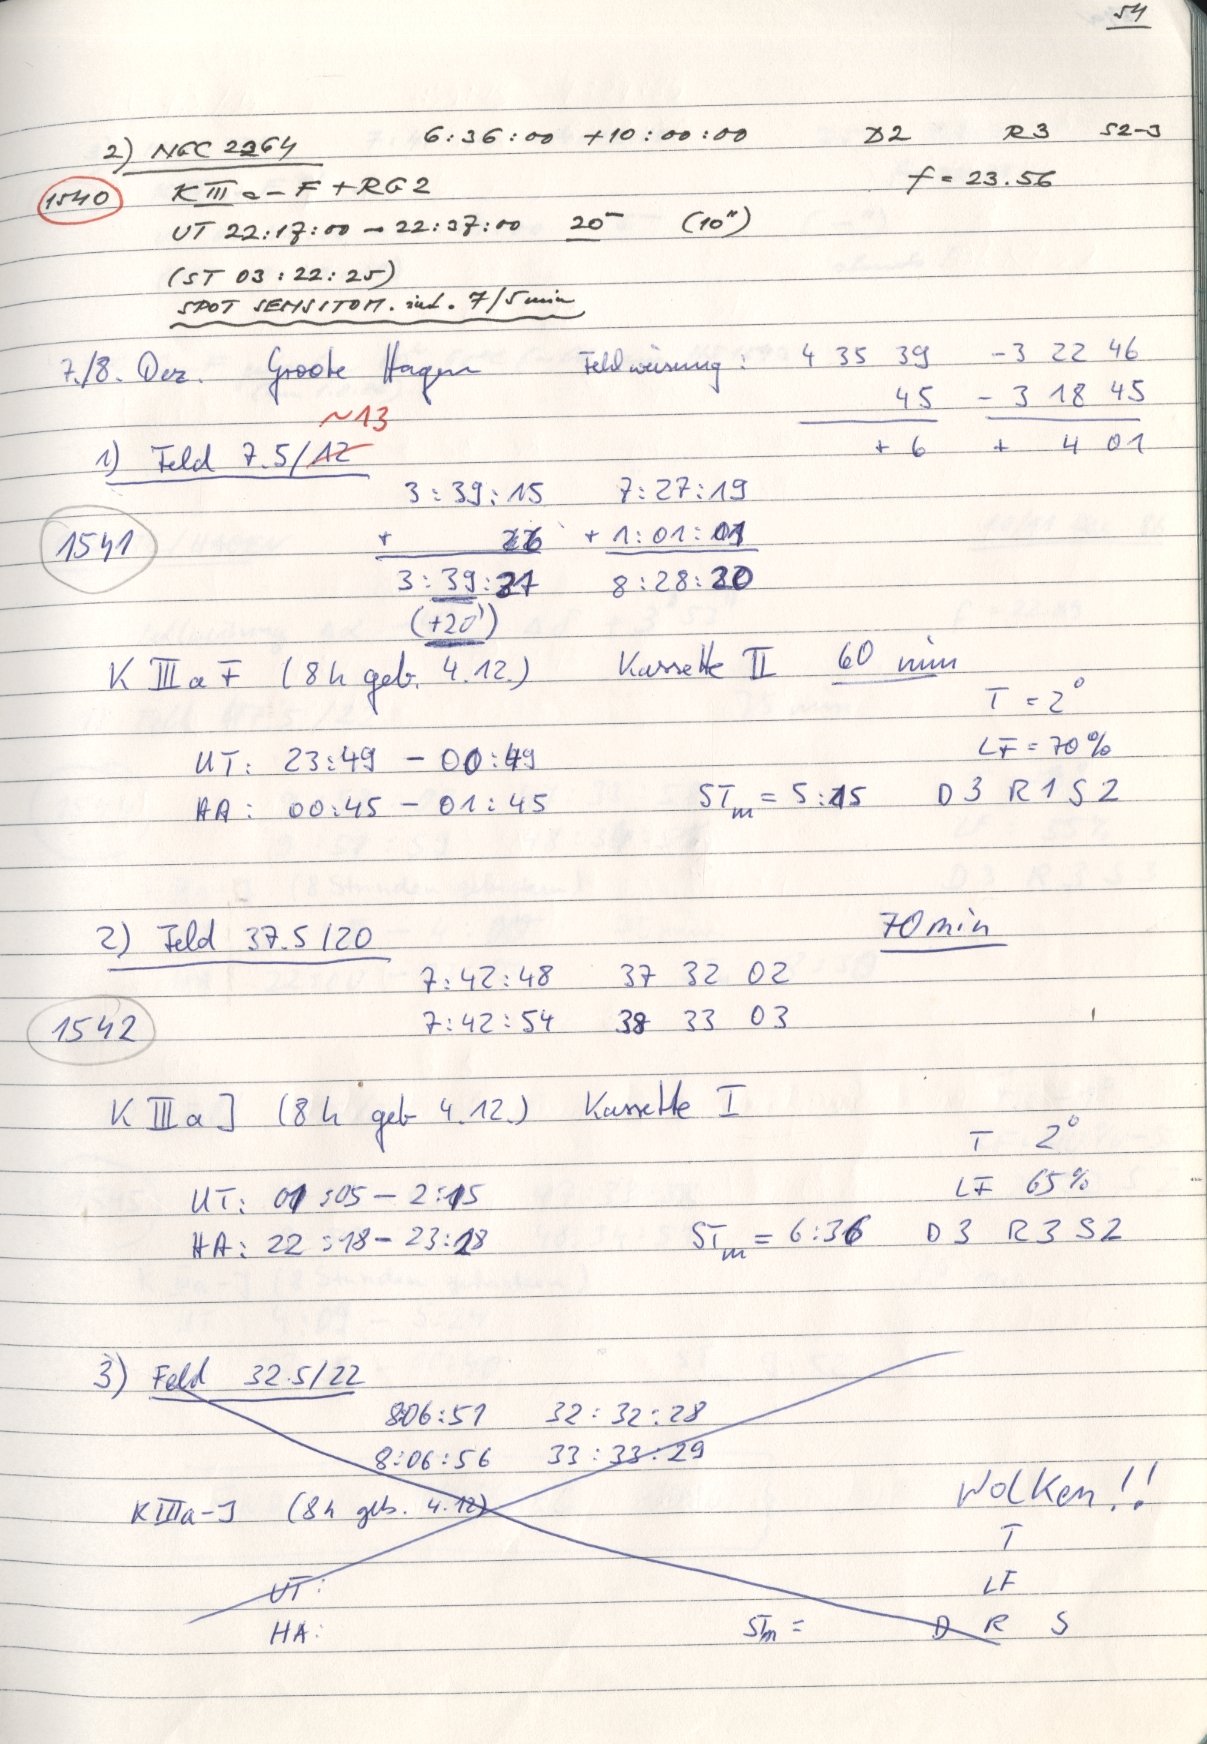 54
2) NGC 2264 6:36:00 +10:00:00 D2 R3 S2-3
1540 K III a - F + RG2 f = 23.56
UT 22:17:00 - 22:37:00 20m (10")
(ST 03:22:25)
SPOT SENSITOM. incl. 7/5 min
7./8. Dez. Groote Hagen Feldweisung: 4 35 39 -3 22 46
45 - 3 18 45
~13 + 6 + 4 01
1) Feld 7.5/12
3:39:15 7:27:19
1541 + + 1:01:01
3:39:21 8:28:20
(+20')
K III a F (8h geb. 4.12.) Kassette II 60 min
T = 2°
UT: 23:49 - 00:49 LF = 70%
HA: 00:45 - 01:45 STm = 5:15 D3 R1 S2
2) Feld 37.5/20 70min
7:42:48 37 32 02
1542 7:42:54 38 33 03
K III a J (8h geb 4.12.) Kassette I
T 2°
UT: 01:05 - 2:15 LF 65%
HA: 22:18 - 23:28 STm = 6:36 D3 R3 S2
3) Feld 32.5/22
8:06:51 32:32:28
8:06:56 33:33:29
KIIIa-J (8h geb. 4.12) Wolken!!
T
UT: LF
HA: STm = D R S